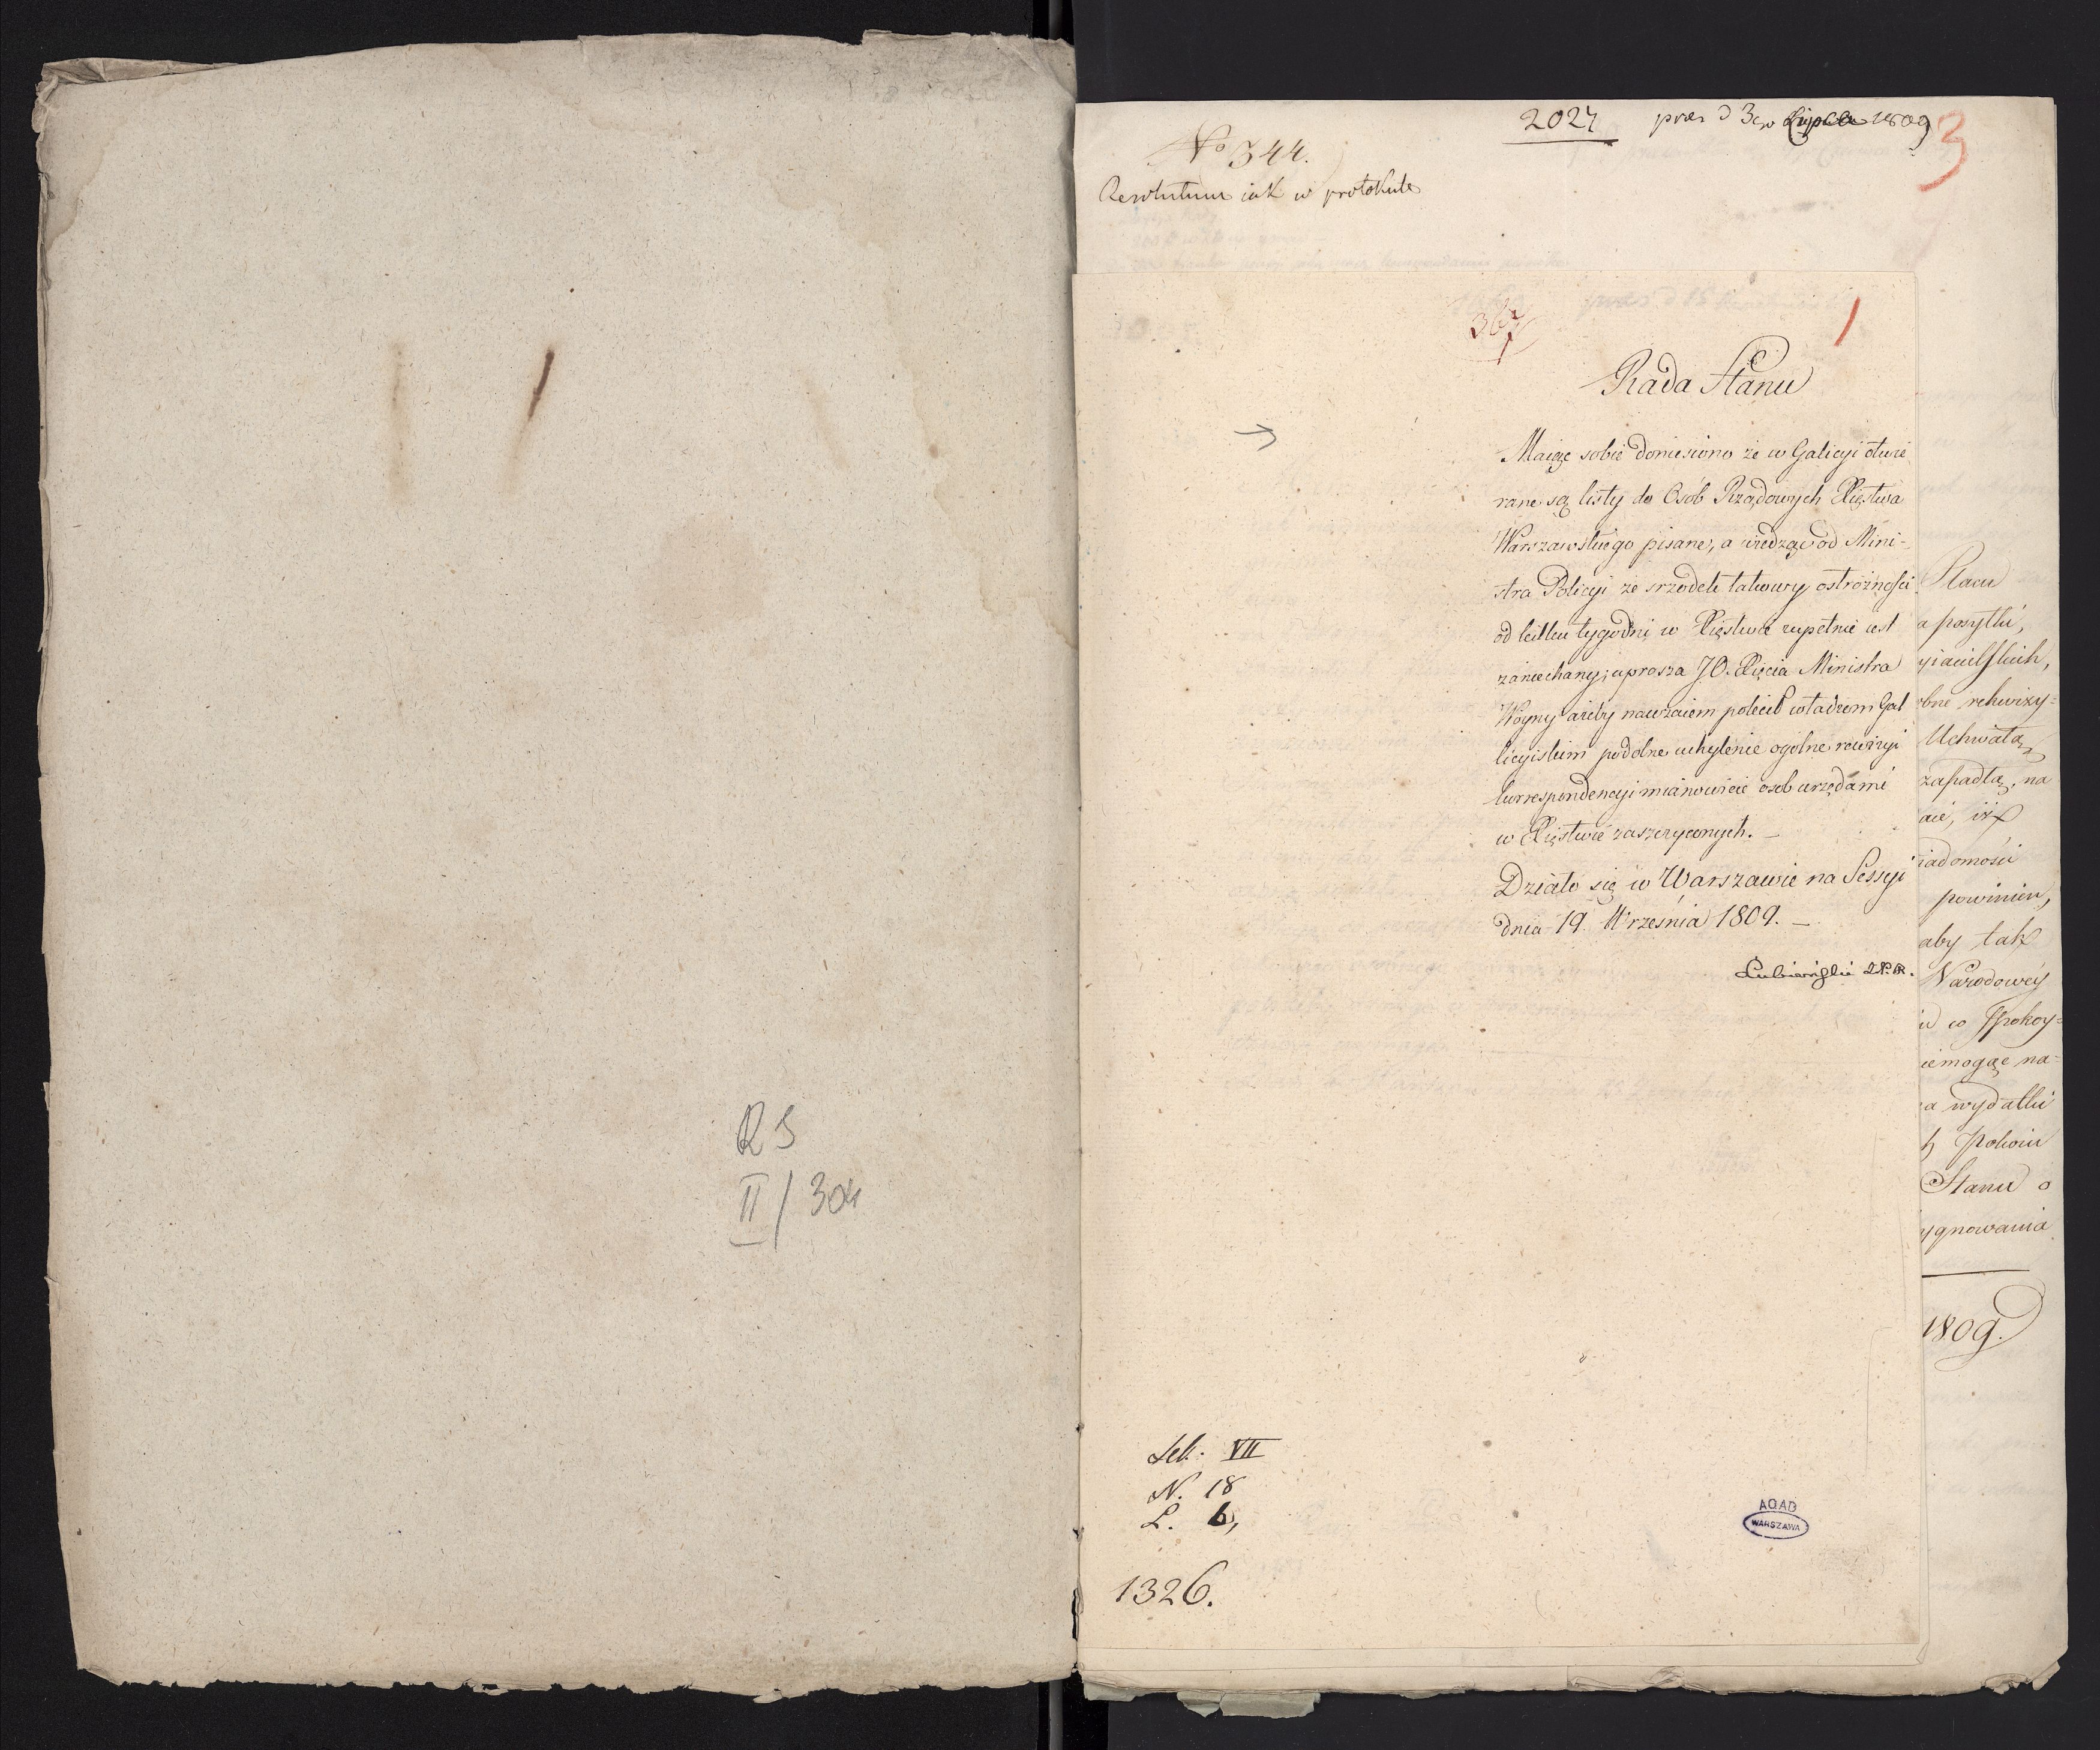 RS
II/304
2027 pres d 3go Lipca 1809
3
No 344.
Resolutum iak w protokule
367
1
1
Rada Stanu
Maiąc sobie doniesiono że w Galicyi otwie
rane są listy do Osób Rządowych Xięstwa
Warszawskiego pisane, a wiedząc od Mini-
stra Policyi że srzodek takowy ostrożności
od kilku tygodni w Xięstwie zupełnie iest
zaniechany; uprasza JO. Xięcia Ministra
Woyny ażeby nawzaiem polecił władzom Gal
licyiskim podobne uchylenie ogólne rewizyi
korrespondencyi mianowicie osob urzędami
w Xięstwie zaszczyconych. —
Działo się w Warszawie na Sessyi
dnia 19. Września 1809. —
Lubieński
Placu
a posyłki,
yiacielskich,
bne rekwizy=
Uchwałą
zapadłą, na
aie, iż
iadomości
powinien,
aby tak
Narodowey
w co spokoy=
iemogąc na=
a wydatki
h Pokoiu
Stanu o
ygnowania
1809.
Sek. VII
N. 18
L. 6,
1326.
AGAD
WARSZAWA